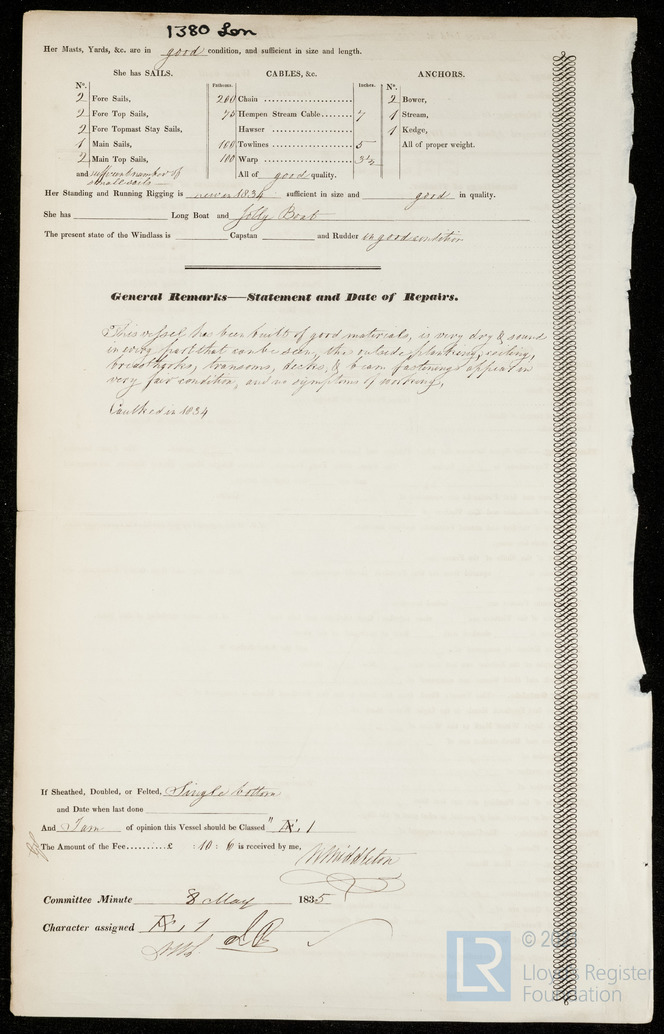 1380 Lon
Her Masts, Yards, &c. are in good condition, and sufficient in size and length.
She has SAILS. CABLES, &c. ANCHORS.
Nº. Fathoms. Inches. Nº.
2 Fore Sails, 200 Chain 2 Bower,
2 Fore Top Sails, 75 Hempen Stream Cable 7 1 Stream,
2 Fore Topmast Stay Sails, Hawser 1 Kedge,
1 Main Sails, 100 Towlines 5 All of proper weight.
2 Main Top Sails, 100 Warp 3½
and sufficient number of small sails All of good quality.
Her Standing and Running Rigging is new in 1834 sufficient in size and good in quality.
She has Long Boat and Jolly Boat
The present state of the Windlass is Capstan and Rudder in good condition
General Remarks—Statement and Date of Repairs.
This vessel has been built of good materials, is very dry & sound
in every part that can be seen, the outside planking, ceiling,
breasthooks, transoms, decks, & beam fastenings appear in
very fair condition, and no symptoms of working,
Caulked in 1834
If Sheathed, Doubled, or Felted, Single bottom
and Date when last done
And I am of opinion this Vessel should be Classed " Æ 1
The Amount of the Fee......£ : 10 : 6 is received by me,
W Middleton
Committee Minute 8 May 1835
Character assigned Æ 1
LR
© 20
Lloyd's Register
Foundation